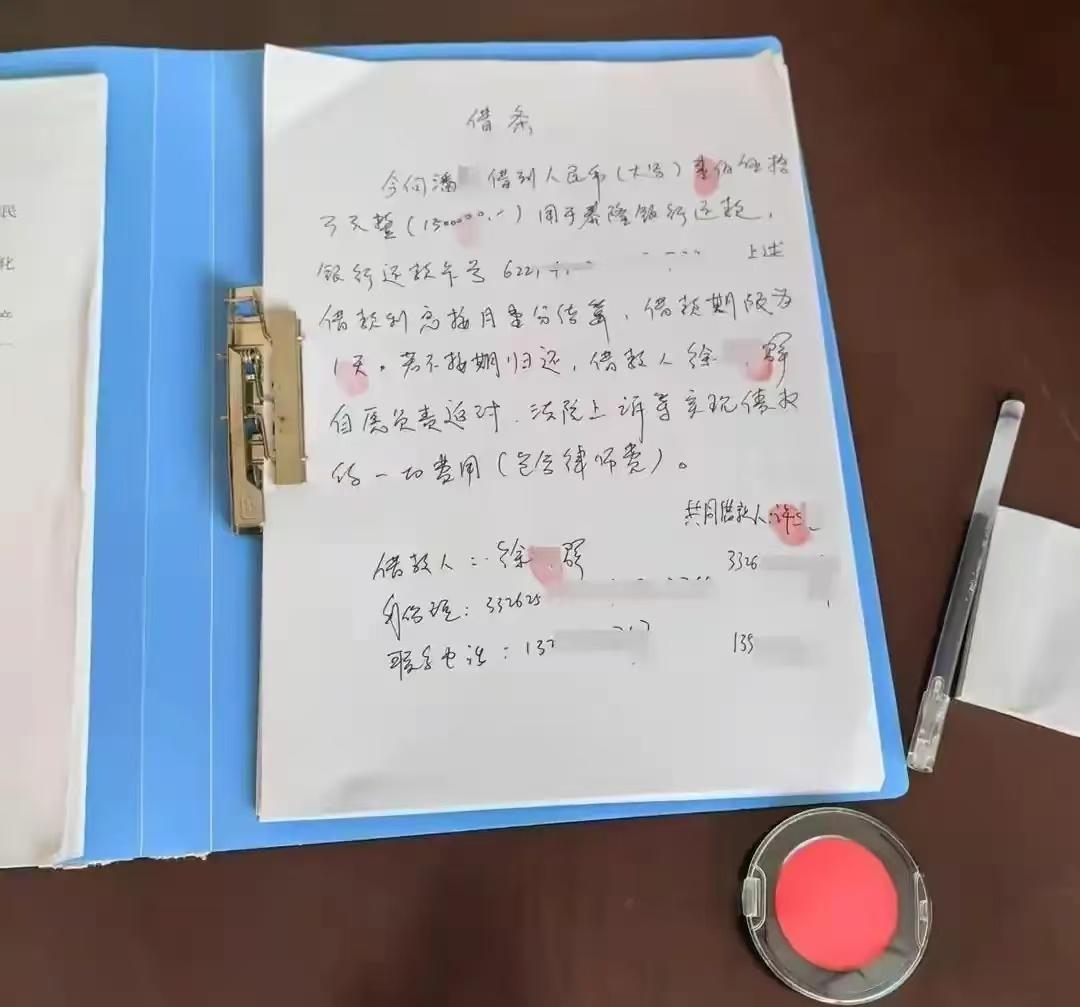 民
借条
今向潘 借到人民币（大写）壹佰伍拾
万元整（1500000.-）用于泰隆银行还款，
银行还款卡号 622 上述
借款利息按月壹分结算，借款期限为
1天。若不按期归还，借款人徐 群
自愿负责返还、法院上诉等实现债权
的一切费用（包含律师费）。
共同借款人：许
借款人：徐 群
3326
身份证：332625
联系电话：137
139